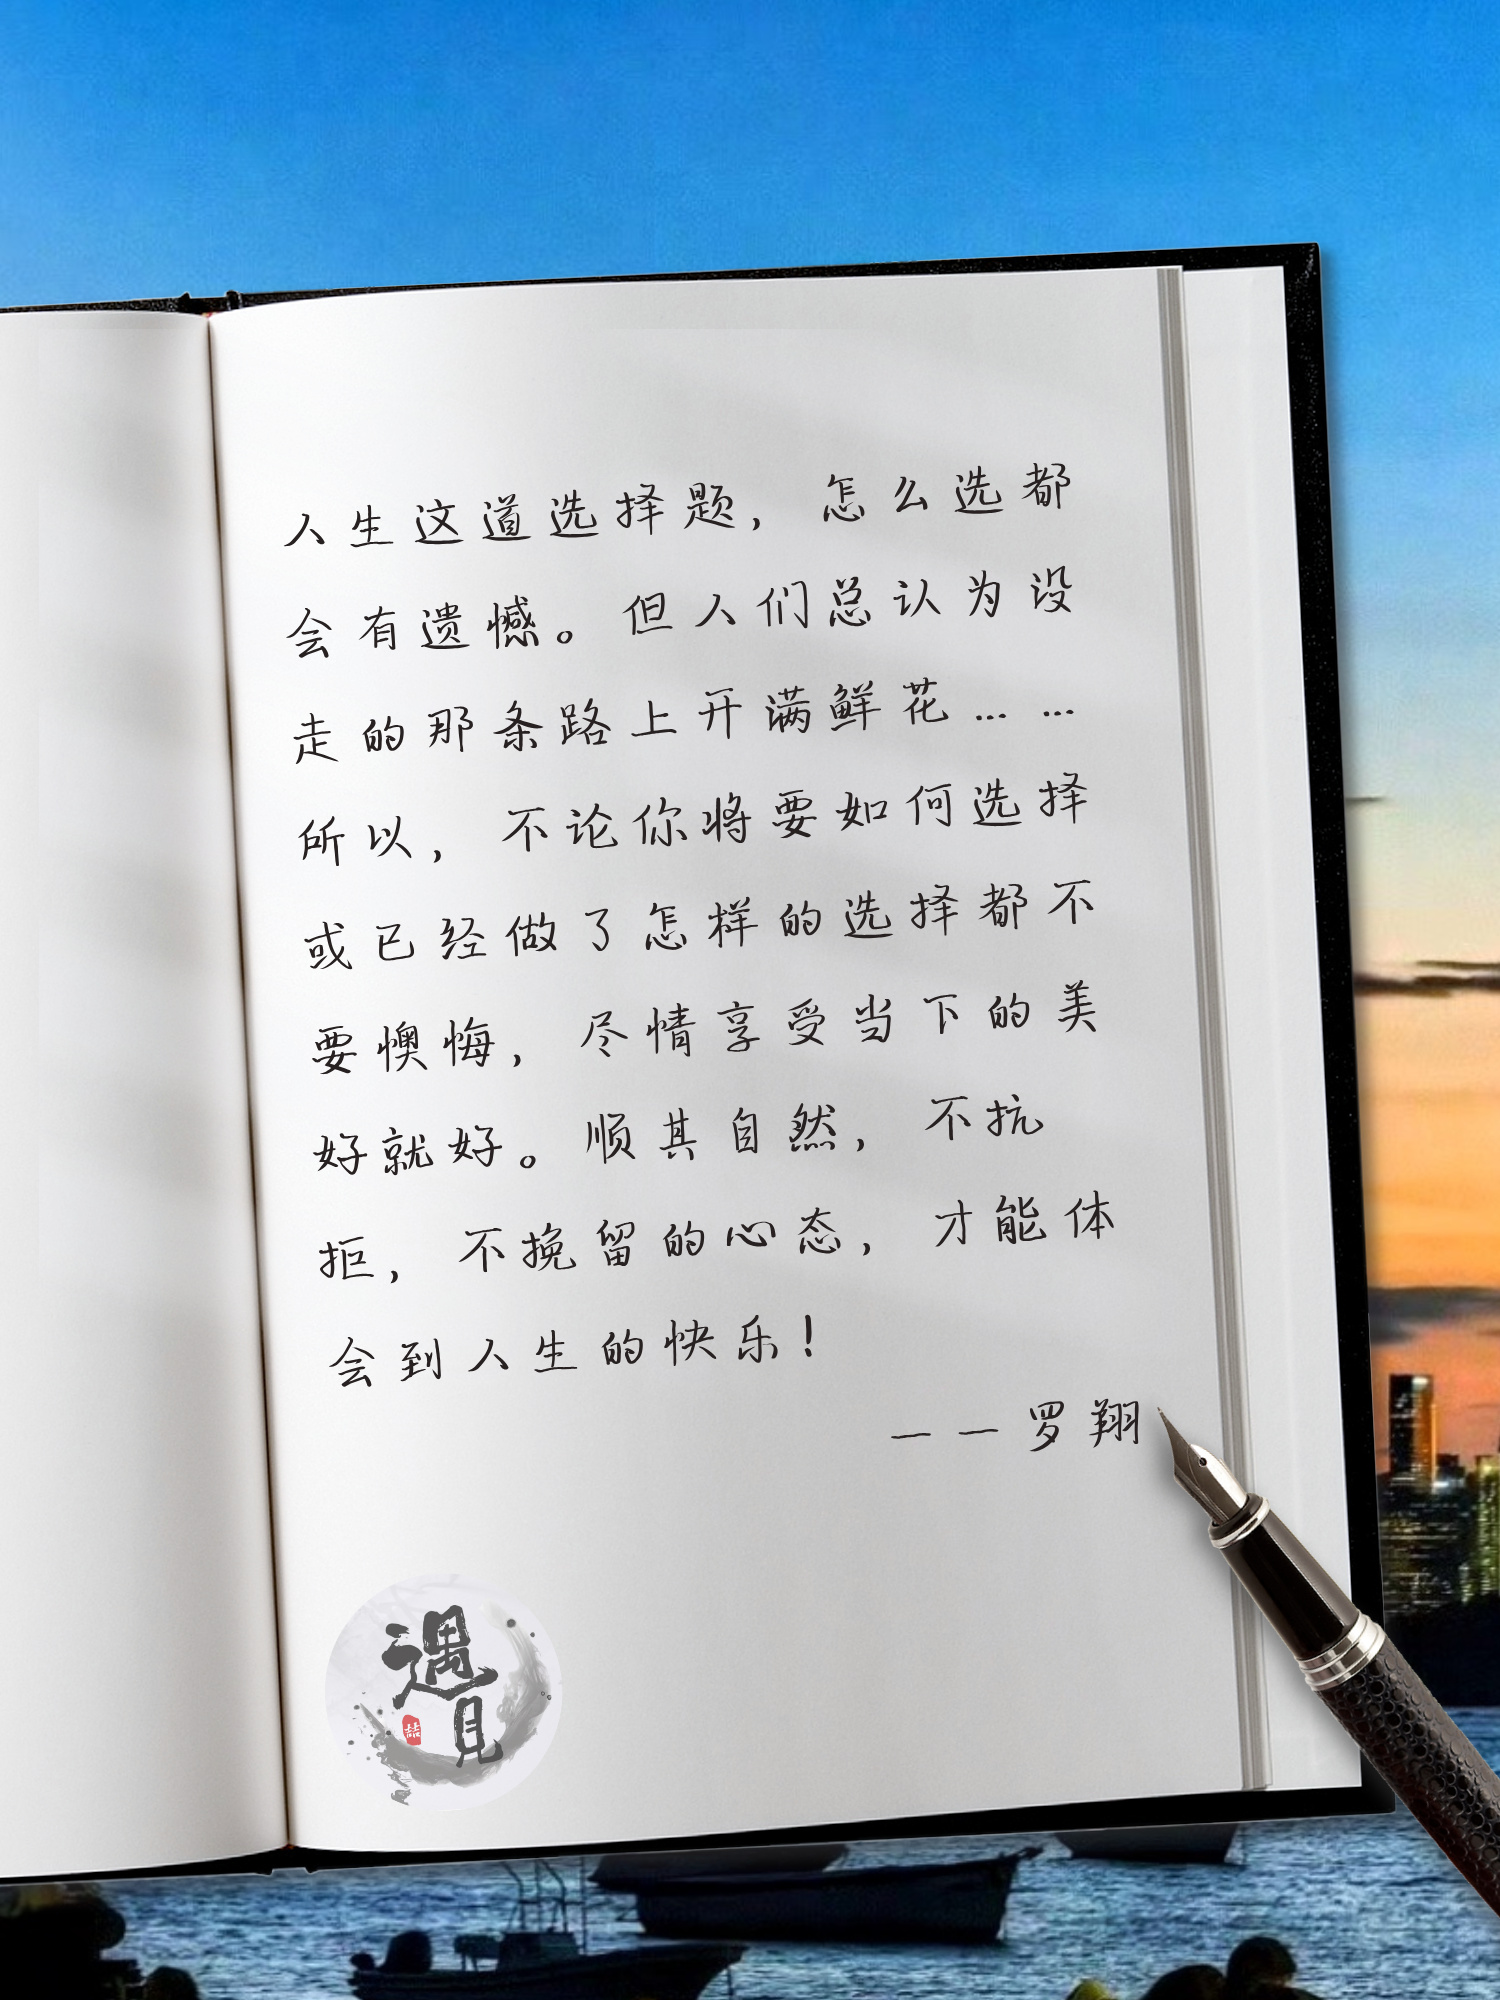 人生这道选择题，怎么选都
会有遗憾。但人们总认为没
走的那条路上开满鲜花……
所以，不论你将要如何选择
或已经做了怎样的选择都不
要懊悔，尽情享受当下的美
好就好。顺其自然，不抗
拒，不挽留的心态，才能体
会到人生的快乐！
——罗翔
遇
见
喆